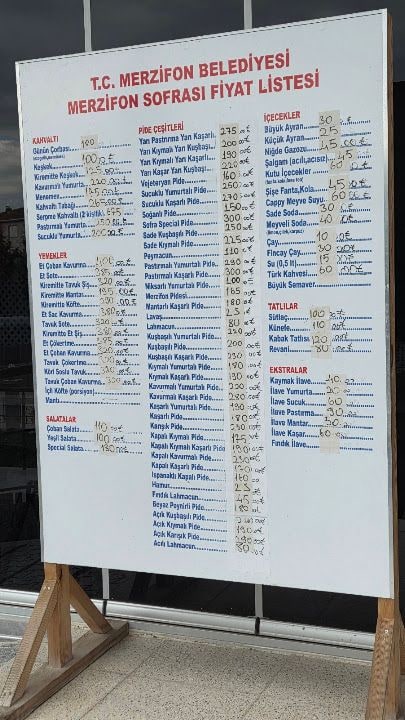 T.C. MERZİFON BELEDİYESİ
MERZİFON SOFRASI FİYAT LİSTESİ
KAHVALTI
Günün Çorbası 100
Keşkek 100.00₺
Kiremitte Keşkek 125.00₺
Kavurmalı Yumurta 220.00₺
Menemen 135.00₺
Kahvaltı Tabağı 265.00₺
Serpme Kahvaltı (2 kişilik)
Pastırmalı Yumurta 250.00₺
Sucuklu Yumurta 200.00₺
YEMEKLER
Et Çoban Kavurma
Et Sote 385
Kiremitte Tavuk Şiş 320
Kiremitte Mantar 195.00₺
Kiremitte Köfte
Et Sac Kavurma 380
Tavuk Sote 320
Kiremitte Et Şiş 380
Et Çökertme 395
Et Çoban Kavurma
Tavuk Çökertme
Köri Soslu Tavuk 320
Tavuk Çoban Kavurma
İçli Köfte (porsiyon)
Mantı
SALATALAR
Çoban Salata 110.00₺
Yeşil Salata 100.00₺
Special Salata 130.00₺
PİDE ÇEŞİTLERİ
Yarı Pastırma Yarı Kaşarlı 275.00₺
Yarı Kıymalı Yarı Kuşbaşı 200.00₺
Yarı Kıymalı Yarı Kaşarlı 190.00₺
Yarı Kaşar Yarı Kuşbaşı 220.00₺
Vejeteryan Pide 160.00₺
Sucuklu Yumurtalı Pide 250.00₺
Sucuklu Kaşarlı Pide 270.00₺
Soğanlı Pide 150
Sofra Special Pide 300.00₺
Sade Kuşbaşılı Pide 250.00₺
Sade Kıymalı Pide 225.00₺
Peymacun 110
Pastırmalı Yumurtalı Pide 290.00₺
Pastırmalı Kaşarlı Pide 300.00₺
Niksarlı Yumurtalı Pide 100
Merzifon Pidesi 165
Mantarlı Kaşarlı Pide 180
Lavaş
Lahmacun 80
Kuşbaşılı Yumurtalı Pide
Kuşbaşılı Pide 200
Kuşbaşılı Kaşarlı Pide 230
Kıymalı Yumurtalı Pide
Kıymalı Kaşarlı Pide
Kavurmalı Yumurtalı Pide
Kavurmalı Kaşarlı Pide 280
Kaşarlı Yumurtalı Pide 190
Kaşarlı Pide 180
Karışık Pide 230
Kapalı Kıymalı Pide 175
Kapalı Kıymalı Kaşarlı Pide 190
Kapalı Kavurmalı Pide 230
Kapalı Kaşarlı Pide 170
Ispanaklı Kapalı Pide 160
Hamur
Fındık Lahmacun 45
Beyaz Peynirli Pide 180
Açık Kuşbaşılı Pide
Açık Kıymalı Pide 190
Açık Karışık Pide 290
Acılı Lahmacun 80
İÇECEKLER
Büyük Ayran 30
Küçük Ayran 25
Niğde Gazozu 45.00₺
Şalgam (acılı,acısız) 45
Kutu İçecekler 60
Şişe Fanta,Kola 45
Cappy Meyve Suyu 60
Sade Soda 30
Meyveli Soda 40
Çay 10
Fincan Çay 30.00₺
Su (0,5 lt) 15
Türk Kahvesi 60
Büyük Semaver
TATLILAR
Sütlaç 100
Künefe 110
Kabak Tatlısı 120
Revani 80
EKSTRALAR
Kaymak İlave 40
İlave Yumurta 20
İlave Sucuk 60
İlave Pastırma 90
İlave Mantar 50
İlave Kaşar 60
Fındık İlave